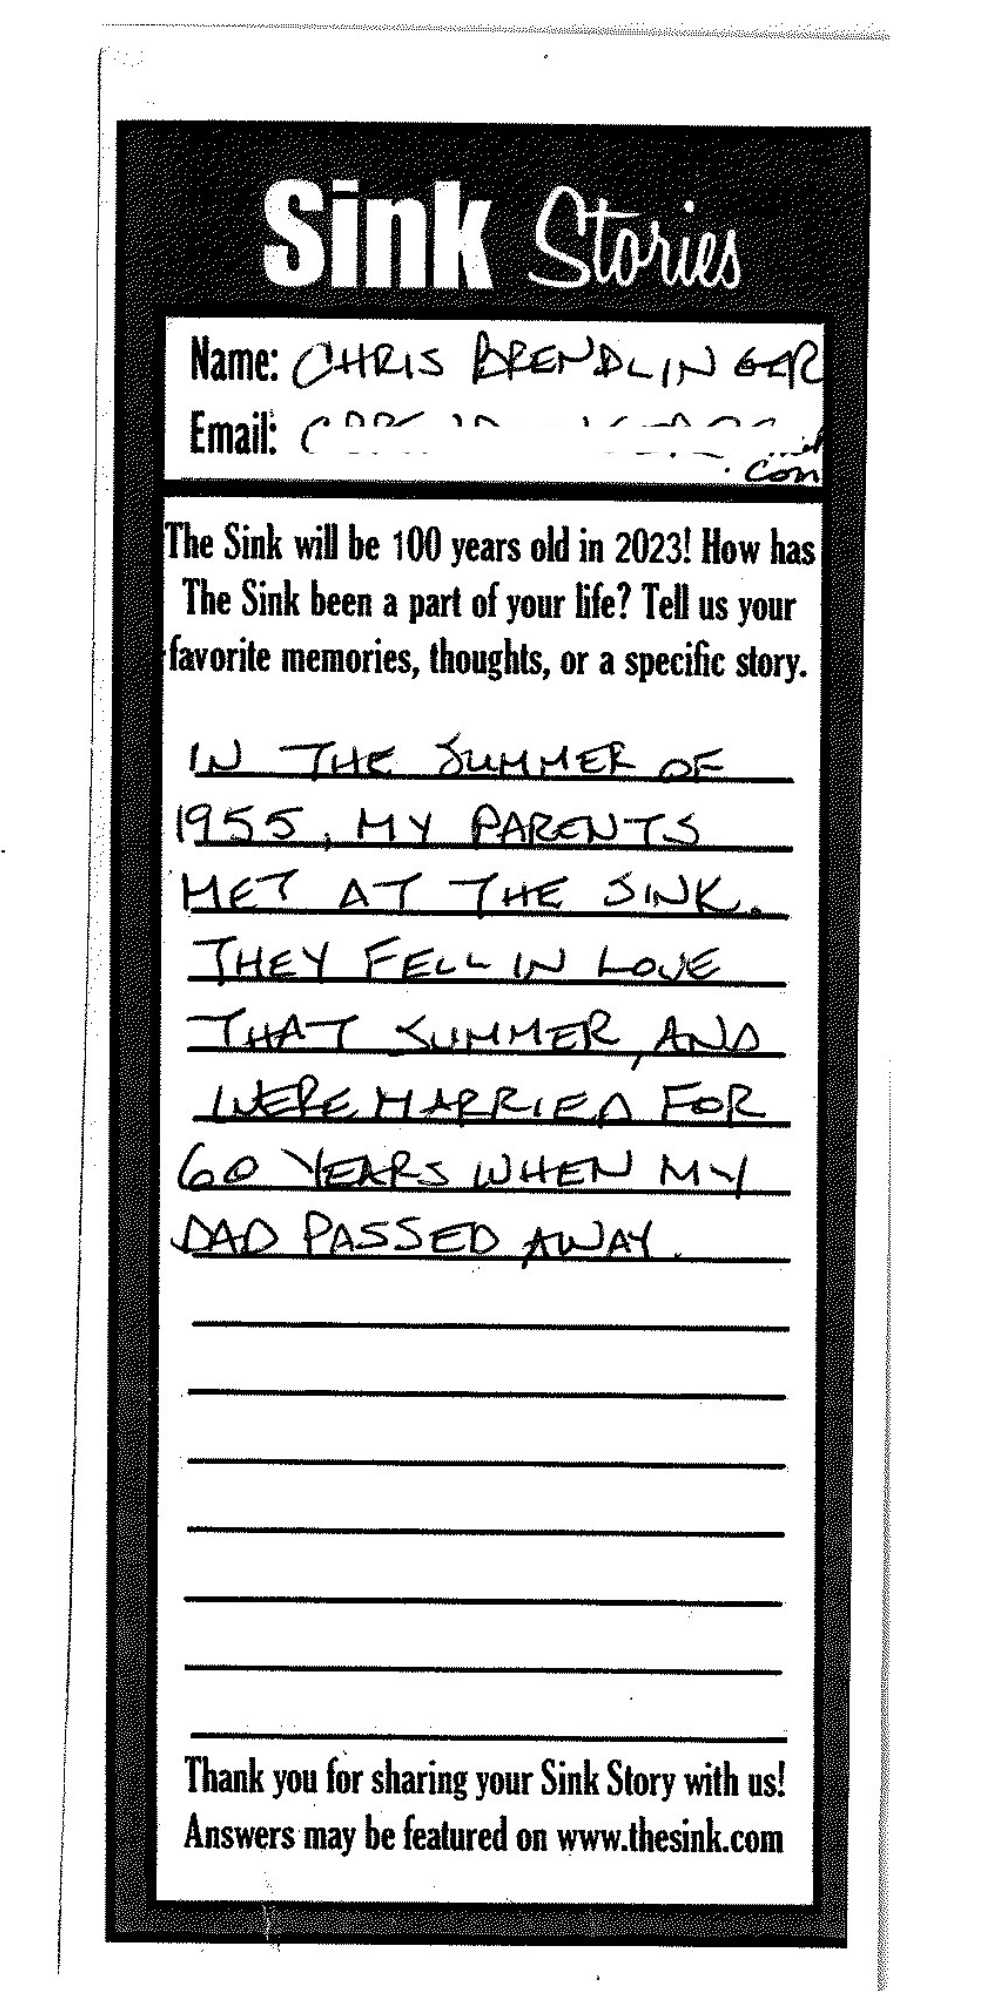 Sink Stories
Name: CHRIS BRENDLINGER
Email:
.com
The Sink will be 100 years old in 2023! How has
The Sink been a part of your life? Tell us your
favorite memories, thoughts, or a specific story.
IN THE SUMMER OF
1955, MY PARENTS
MET AT THE SINK.
THEY FELL IN LOVE
THAT SUMMER, AND
WERE MARRIED FOR
60 YEARS WHEN MY
DAD PASSED AWAY.
Thank you for sharing your Sink Story with us!
Answers may be featured on www.thesink.com